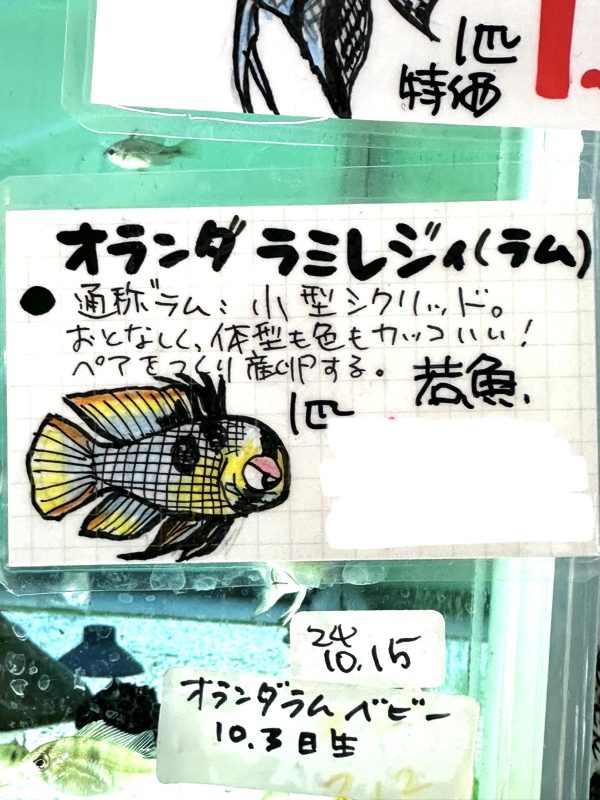 1匹
特価
1.
オランダラミレジィ(ラム)
● 通称ラム: 小型シクリッド。
おとなしく、体型も色もカッコいい!
ペアをつくり産卵する。
若魚、
1匹
24
10.15
オランダラムベビー
10.3日生